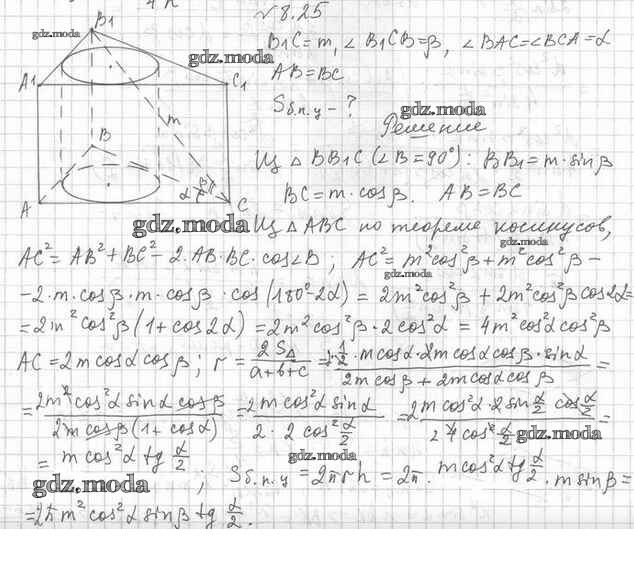 № 8.25
B₁
gdz.moda
gdz.moda
B₁C = m, ∠ B₁CB = β, ∠ BAC = ∠BCA = α
A₁
C₁
AB = BC
m
Sб.п.ц - ?
gdz.moda
Решение
B
Из △ BB₁C (∠B = 90°): BB₁ = m · sin β
α
β
A
C
BC = m · cos β. AB = BC
gdz.moda
Из △ ABC по теореме косинусов,
gdz.moda
AC² = AB² + BC² - 2·AB·BC·cos∠B ; AC² = m²cos²β + m²cos²β -
gdz.moda
- 2·m·cos β·m·cos β·cos(180°-2α) = 2m²cos²β + 2m²cos²β cos2α =
= 2m²cos²β(1+cos 2α) = 2m²cos²β·2cos²α = 4m²cos²α cos²β
AC = 2m cosα cos β ; r = 2S△/(a+b+c) = 2·½·m cosα·2m cosα cos β·sin α/(2m cos β + 2m cosα cos β) =
= 2m²cos²α sinα cos β/(2m cos β(1+cos α)) = 2m cos²α sinα/(2·2cos² α/2) = 2m cos²α·2 sin α/2 cos α/2/(4 cos² α/2) =
gdz.moda
gdz.moda
= m cos²α tg α/2 ; Sб.п.ц = 2πrh = 2π · m cos²α tg α/2 · m sin β =
gdz.moda
= 2πm²cos²α sin β tg α/2.